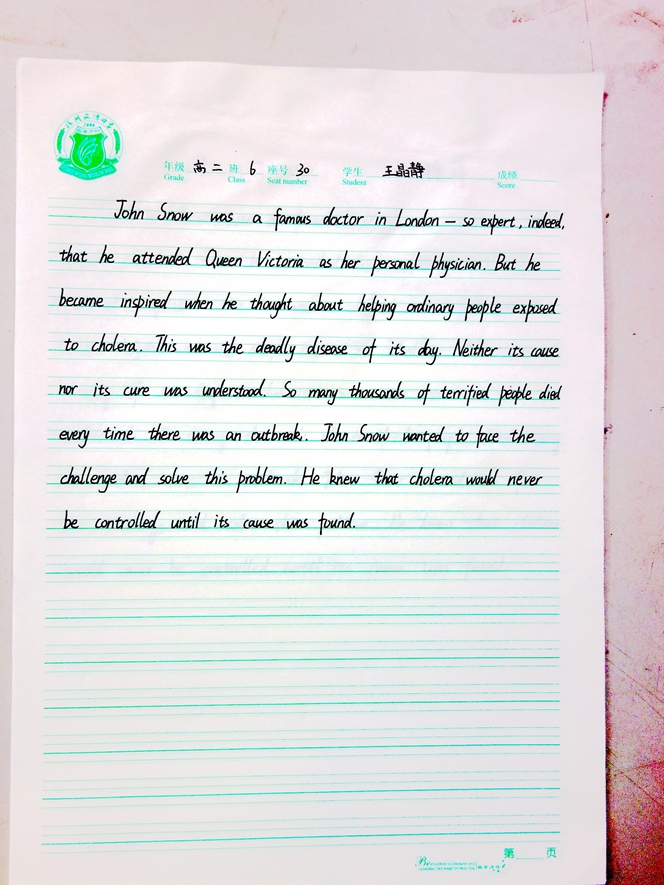 年级 高二 班 6 座号 30 学生 王晶静 成绩
Grade Class Seat number Student Score
John Snow was a famous doctor in London — so expert, indeed,
that he attended Queen Victoria as her personal physician. But he
became inspired when he thought about helping ordinary people exposed
to cholera. This was the deadly disease of its day. Neither its cause
nor its cure was understood. So many thousands of terrified people died
every time there was an outbreak. John Snow wanted to face the
challenge and solve this problem. He knew that cholera would never
be controlled until its cause was found.
第 页